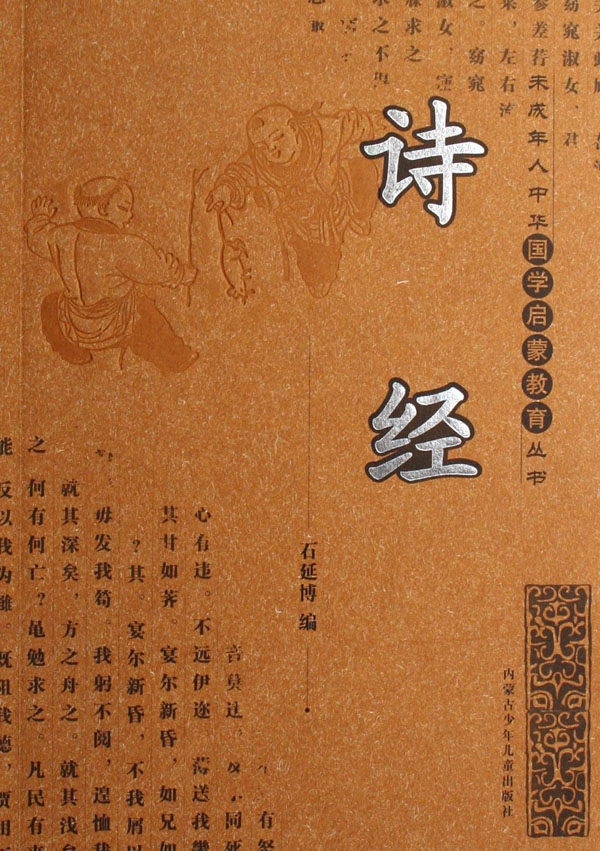 诗经
未成年人中华国学启蒙教育丛书
石延博 编
内蒙古少年儿童出版社
窈窕淑女，君
参差荇
菜，左右流
之。窈窕
淑女，寤
寐求之
求之不得
音莫违，
心有违。不远伊迩，薄送我畿
其甘如荠。宴尔新昏，如兄如
？其。宴尔新昏，不我屑以
毋发我笱。我躬不阅，遑恤我
就其深矣，方之舟之。就其浅矣
之 何有何亡？黾勉求之。凡民有
能 反以我为雠。既阻我德，贾用